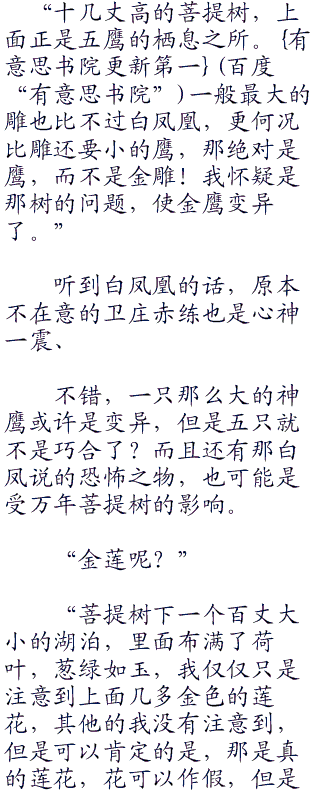 “十几丈高的菩提树，上
面正是五鹰的栖息之所。{有
意思书院更新第一}(百度
“有意思书院”)一般最大的
雕也比不过白凤凰，更何况
比雕还要小的鹰，那绝对是
鹰，而不是金雕！我怀疑是
那树的问题，使金鹰变异
了。”
听到白凤凰的话，原本
不在意的卫庄赤练也是心神
一震、
不错，一只那么大的神
鹰或许是变异，但是五只就
不是巧合了？而且还有那白
凤说的恐怖之物，也可能是
受万年菩提树的影响。
“金莲呢？”
“菩提树下一个百丈大
小的湖泊，里面布满了荷
叶，葱绿如玉，我仅仅只是
注意到上面几多金色的莲
花，其他的我没有注意到，
但是可以肯定的是，那是真
的莲花，花可以作假，但是